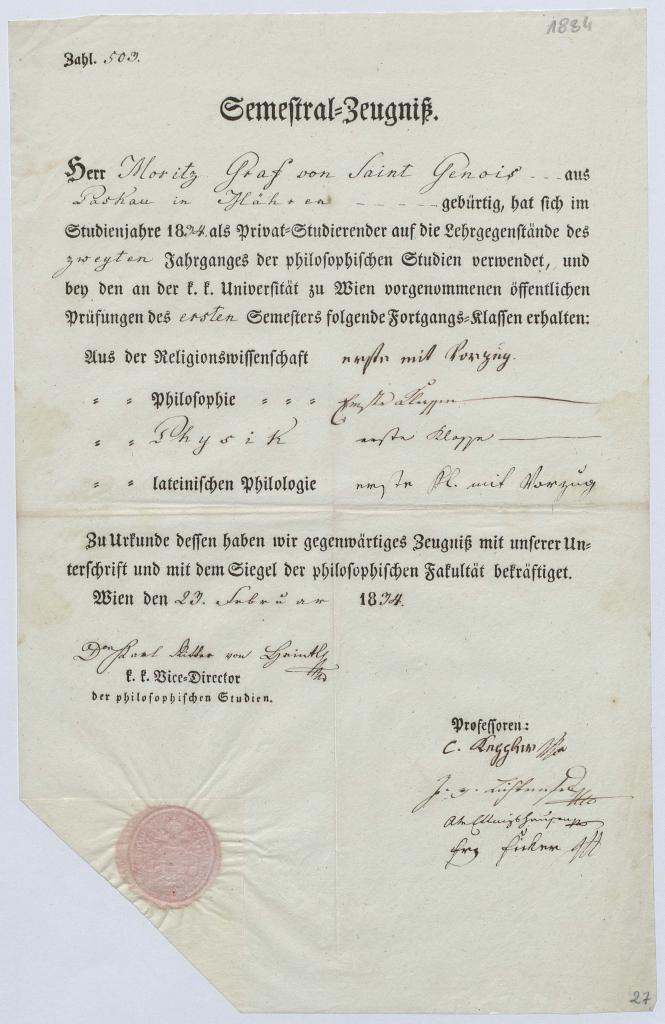 1834
Zahl. 503.
Semestral-Zeugniß.
Herr Moritz Graf von Saint Genois - - - aus
Paskau in Mähren - - - - - gebürtig, hat sich im
Studienjahre 1834. als Privat-Studierender auf die Lehrgegenstände des
zweyten Jahrganges der philosophischen Studien verwendet, und
bey den an der k. k. Universität zu Wien vorgenommenen öffentlichen
Prüfungen des ersten Semesters folgende Fortgangs-Klassen erhalten:
Aus der Religionswissenschaft erste mit Vorzug.
" " Philosophie " " " Erste Klasse
" " Physik erste Klasse
" " lateinischen Philologie erste Kl. mit Vorzug
Zu Urkunde dessen haben wir gegenwärtiges Zeugniß mit unserer Un-
terschrift und mit dem Siegel der philosophischen Fakultät bekräftiget.
Wien den 23. Februar 1834.
Karl Ritter von
k. k. Vice-Director
der philosophischen Studien.
Professoren:
C.
J. v. Lichtenfels
Ettingshausen
Ficker
27